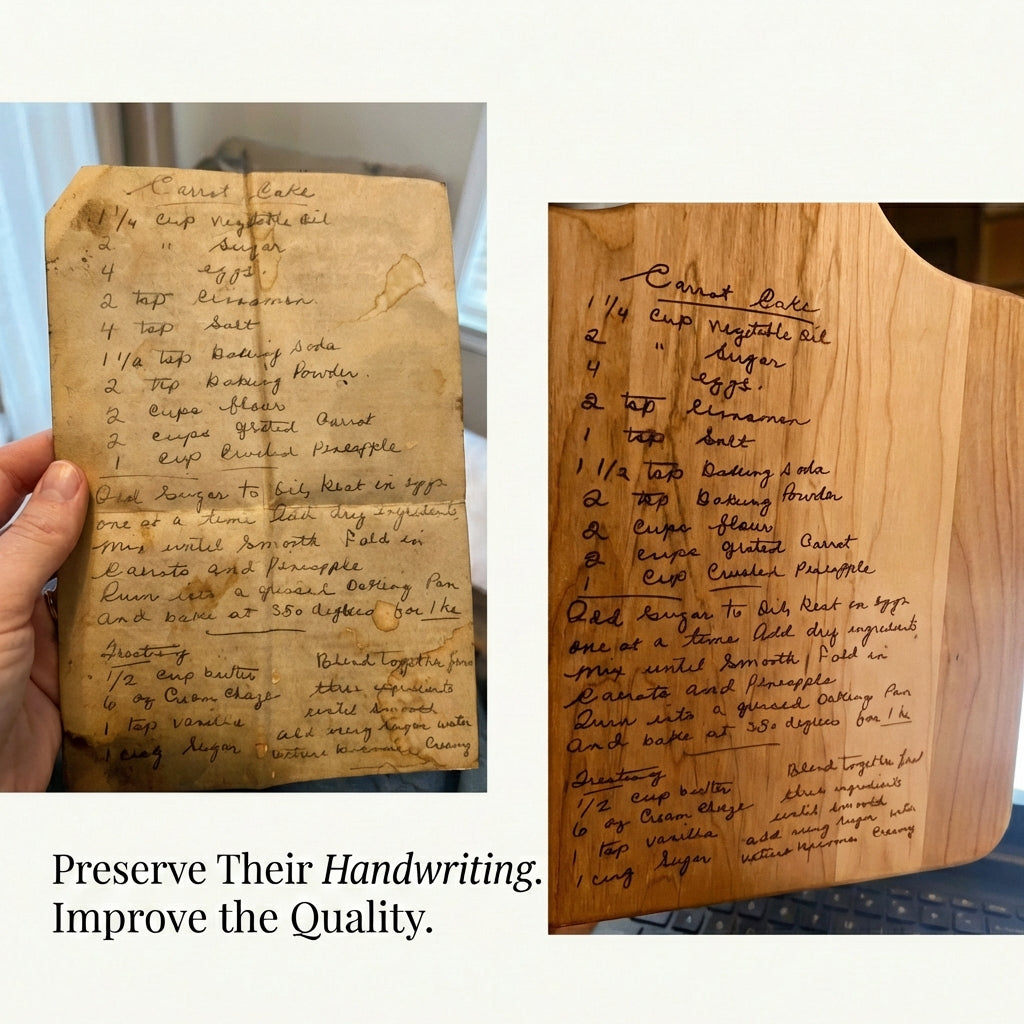 Carrot Cake
1 1/4 cup Vegetable Oil
2 " Sugar
4 eggs.
2 tsp Cinnamon
4 tsp Salt
1 1/2 tsp Baking Soda
2 tsp Baking Powder.
2 cups flour
2 cups grated Carrot
1 cup Crushed Pineapple
Add Sugar to Oil, in eggs
one at a time Add dry ingredients,
Mix until Smooth Fold in
Carrots and Pineapple
into a greased Baking Pan
And bake at 350 degrees for 1
Frosting
1/2 cup butter
6 oz Cream
1 tsp vanilla
1 Sugar
Blend together
three ingredients
until smooth
add sugar
Creamy
Carrot Cake
1 1/4 cup Vegetable Oil
2 " Sugar
4 eggs.
2 tsp Cinnamon
1 tsp Salt
1 1/2 tsp Baking Soda
2 tsp Baking Powder
2 cups flour
2 cups grated Carrot
1 cup Crushed Pineapple
Add Sugar to Oil, in eggs
one at a time Add dry ingredients,
Mix until Smooth, Fold in
Carrots and Pineapple
into a greased Baking Pan
And bake at 350 degrees for 1
Frosting
1/2 cup butter
6 oz Cream
1 tsp vanilla
1 Sugar
Blend together
three ingredients
until smooth
add sugar
Creamy
Preserve Their Handwriting.
Improve the Quality.